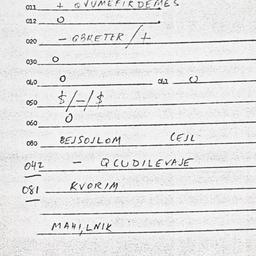 011 + QVUMEFIRDEMES
012 O
020 - GBRETER/+
030 O
040 O 041 O
050 $/-/$
060 O
080 BEJSOJLOM CEJL
042 - QCUDILEVAJE
081 KVORIM
MAHI,LNIK